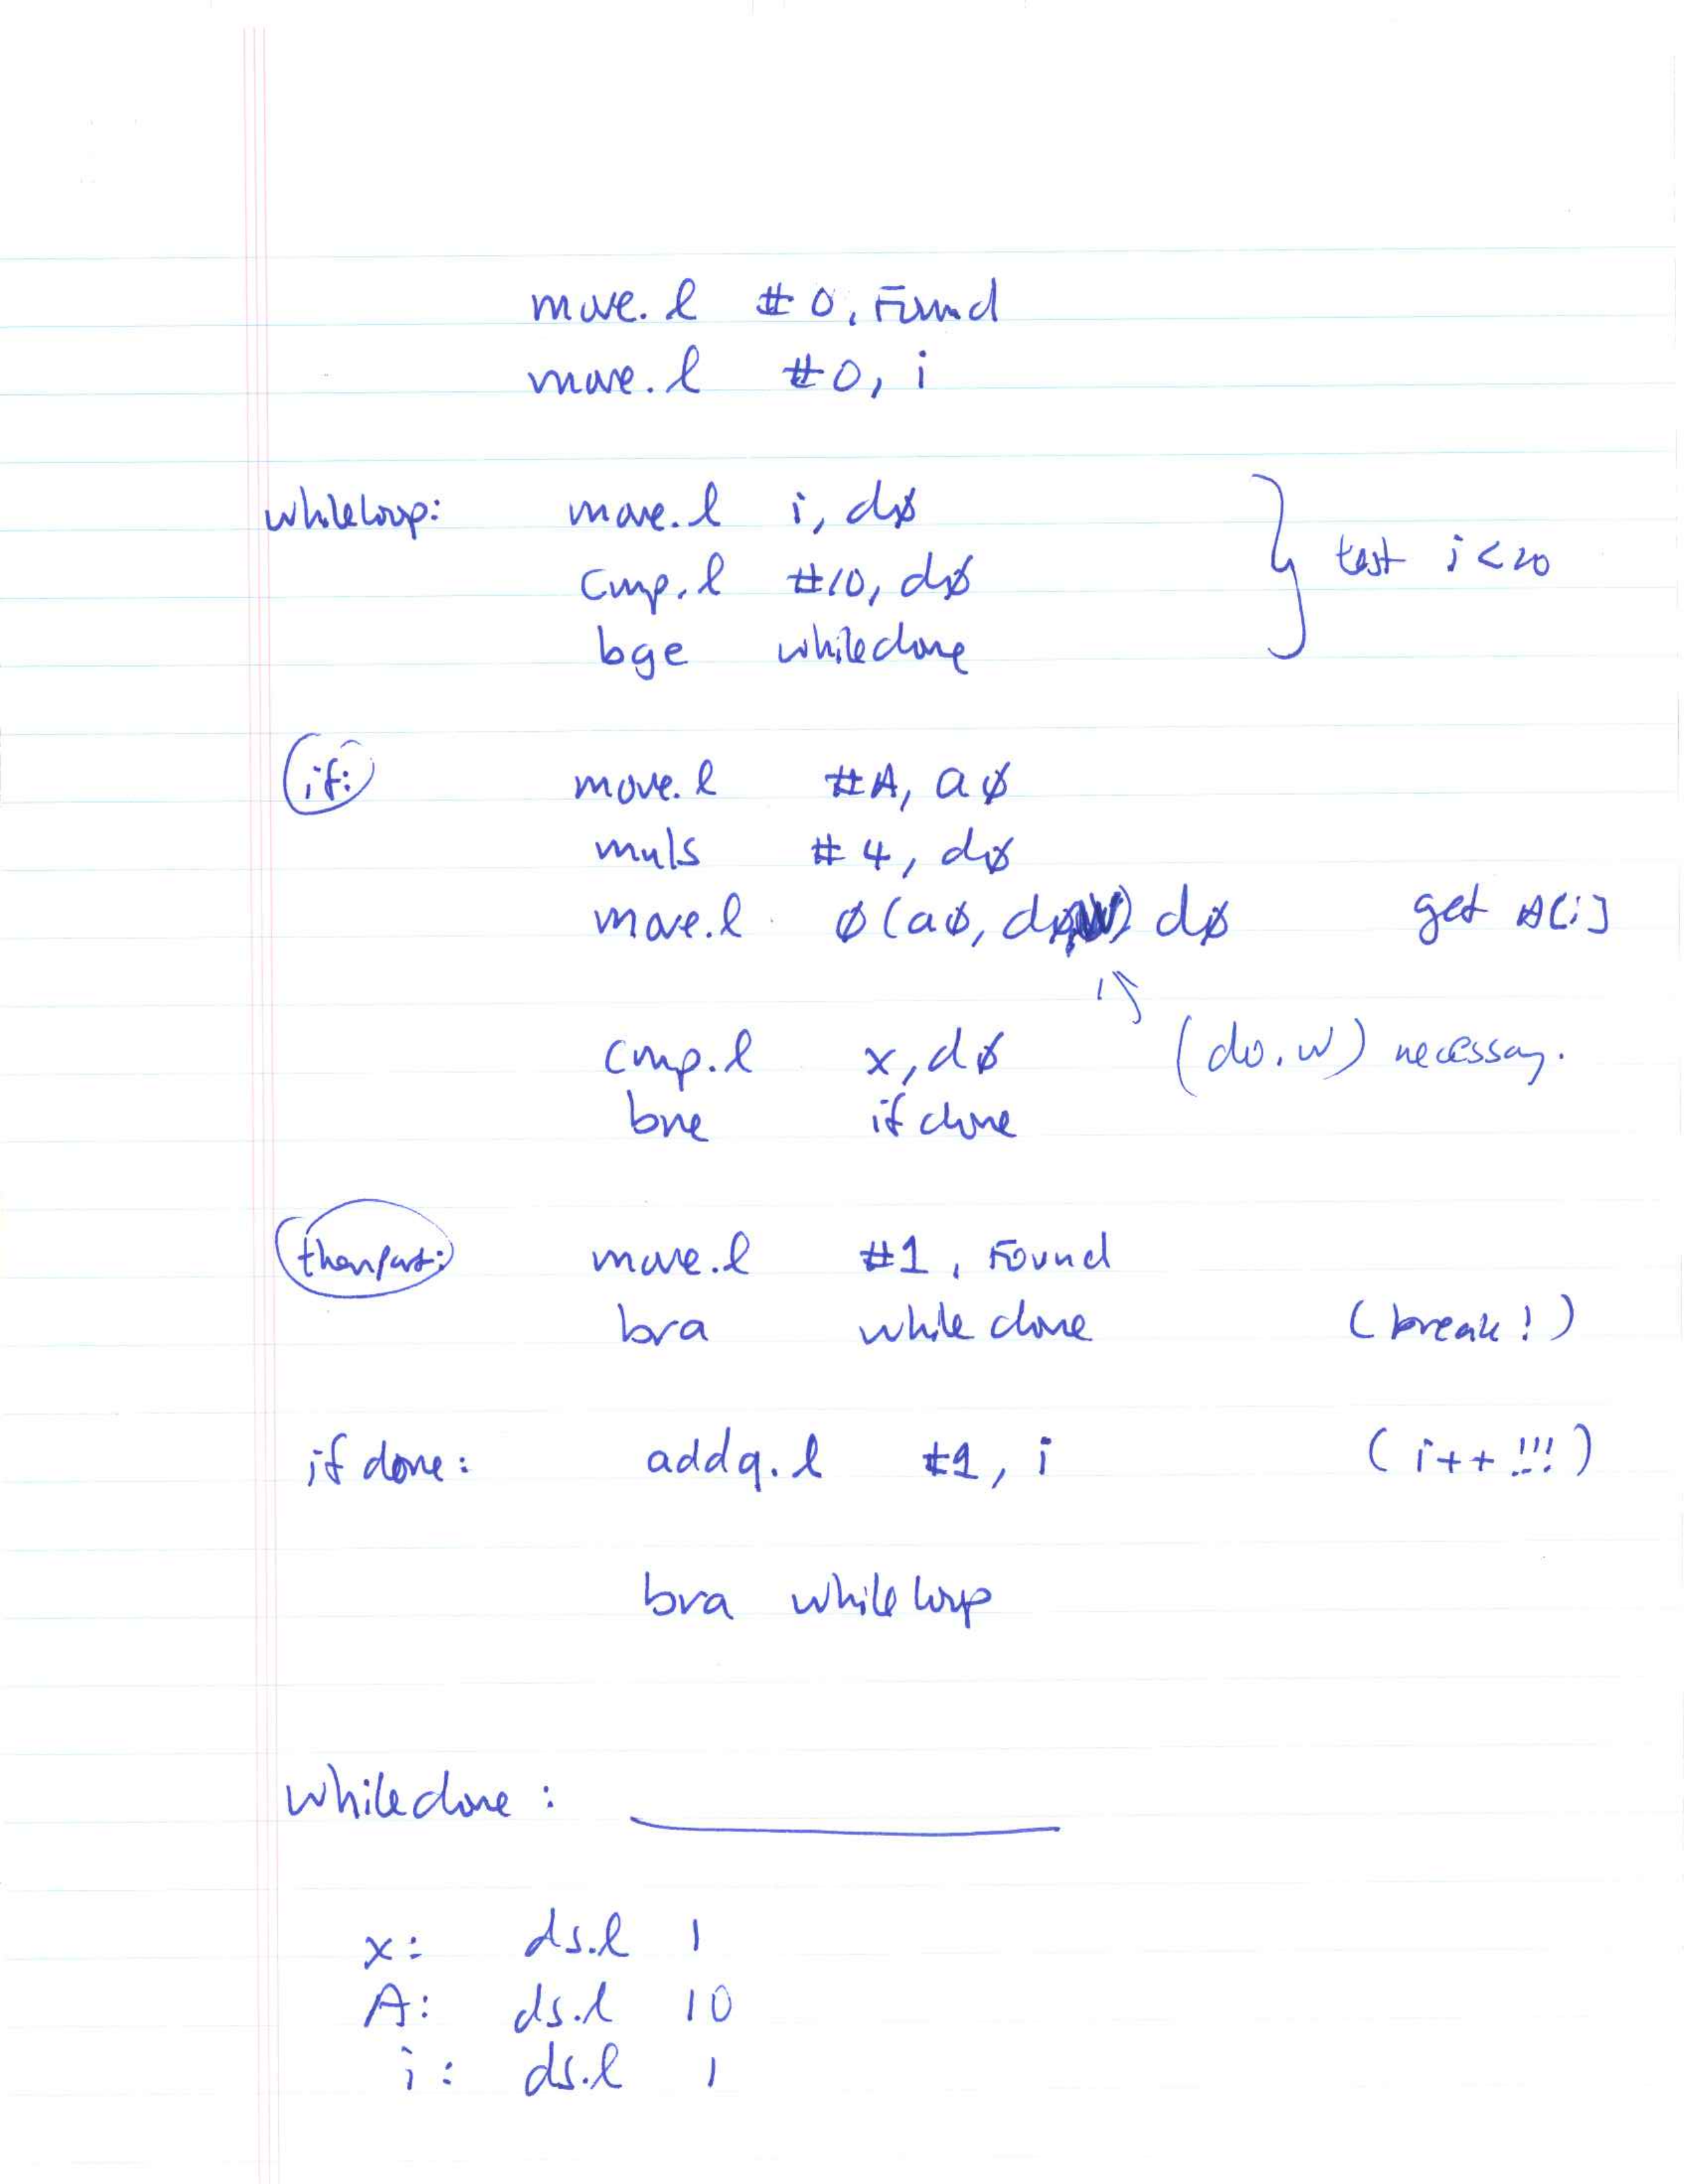 move.l #0, Found
move.l #0, i
whileloop: move.l i, dø
cmp.l #10, dø
bge whiledone
} test i<20
if: move.l #A, aø
muls #4, dø
move.l ø(aø, dø) dø get A[i]
(dø.w) necessary.
cmp.l x, dø
bne ifdone
thenpart: move.l #1, Found
bra whiledone (break!)
ifdone: addq.l #1, i (i++ !!!)
bra whileloop
whiledone:
x: ds.l 1
A: ds.l 10
i: ds.l 1